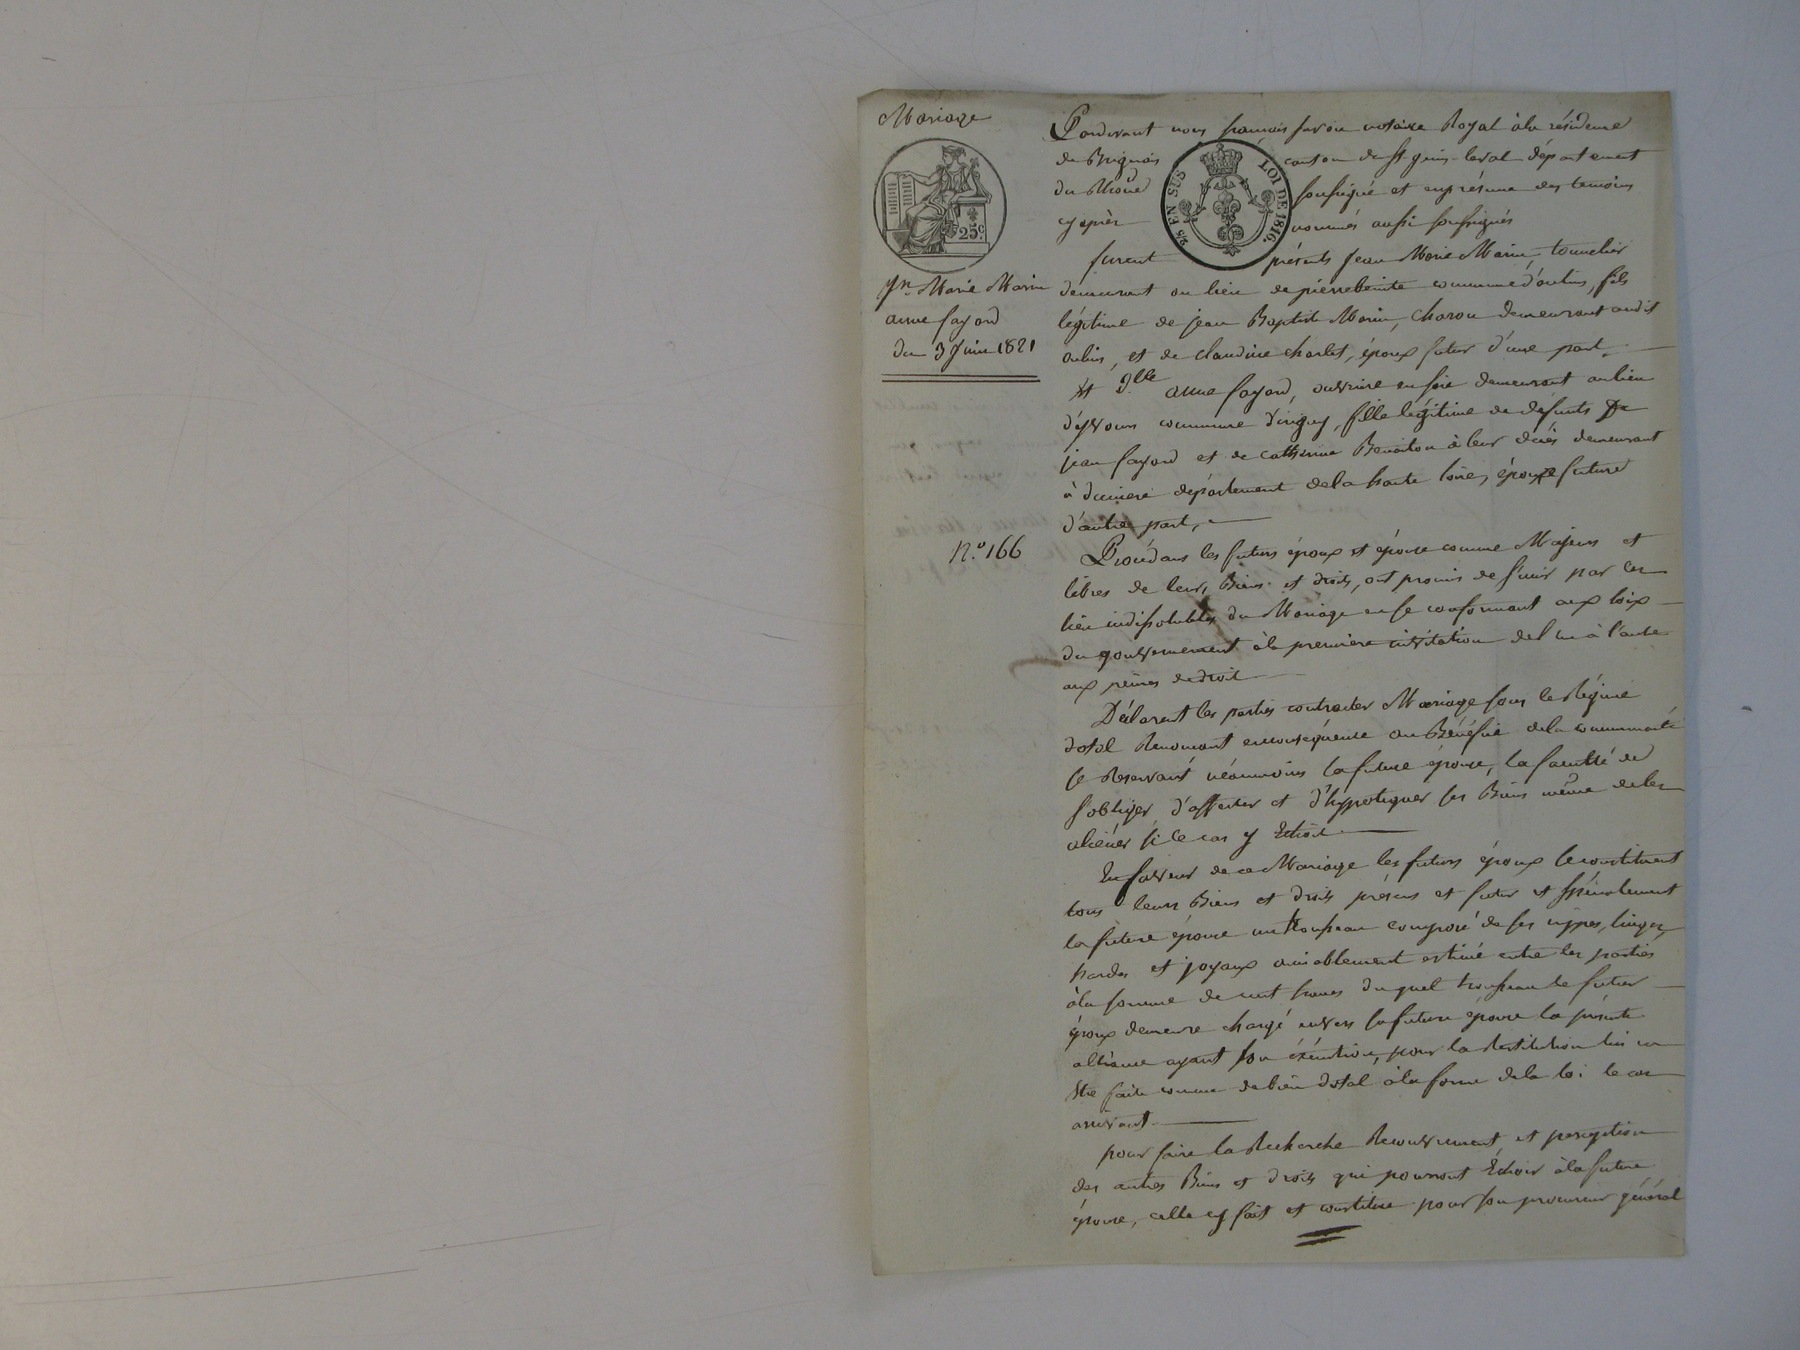 Mariage
25c.
Jn. Marie Marin
anne fayard
du 3 juin 1821
N.o 166
2/5 EN SUS LOI DE 1816.
Pardevant nous françois notaire Royal à la résidence
de Brignais canton de St genis-laval département
du Rhône soussigné et en présence des temoins
cyaprès nommés aussi soussignés
furent présents Jean Marie Marin, tonnelier
demeurant au lieu de pierrebenite commune d'oulins, fils
légitime de jean Baptiste Marin, charon demeurant audit
oulins, et de claudine charlet, époux futur d'une part,
Et Dlle anne fayard, ouvriere en soie demeurant au lieu
commune d'irigny, fille légitime de defunts
jean fayard et de catherine à leur décès demeurant
à duniere département de la haute loire, épouse future
d'autre part,
Procédans les futurs époux et épouse comme Majeurs et
libres de leurs Biens et droits, ont promis de s'unir par les
lien indissolubles du Mariage en se conformant aux loix
du gouvernement à la premiere invitation de l'un à l'autre
aux peines de droit
Déclarent les parties contracter Mariage sous le Régime
dotal Renoncant en conséquence au Bénéfice de la communauté
se Reservant néanmoins la future épouse, la faculté de
s'obliger, d'affecter et d'hypotequer ses Biens même de les
aliéner si le cas y Echoit
En faveur de ce Mariage les futurs époux se constituent
tous leurs Biens et droits présens et futur et spécialement
la future épouse un trousseau composé de ses nippes, linges,
hardes et joyaux amiablement estimé entre les parties
à la somme de cent francs du quel trousseau le futur
époux demeure chargé envers la future épouse la présente
alliance ayant son éxécution, pour la Restitution lui en
Etre faite comme de bien dotal à la forme de la loi le cas
arrivant
pour faire la Recherche Recouvrement et perception
des autres Biens et droits qui pourront Echoir à la future
épouse, celle cy fait et constitue pour son procureur général